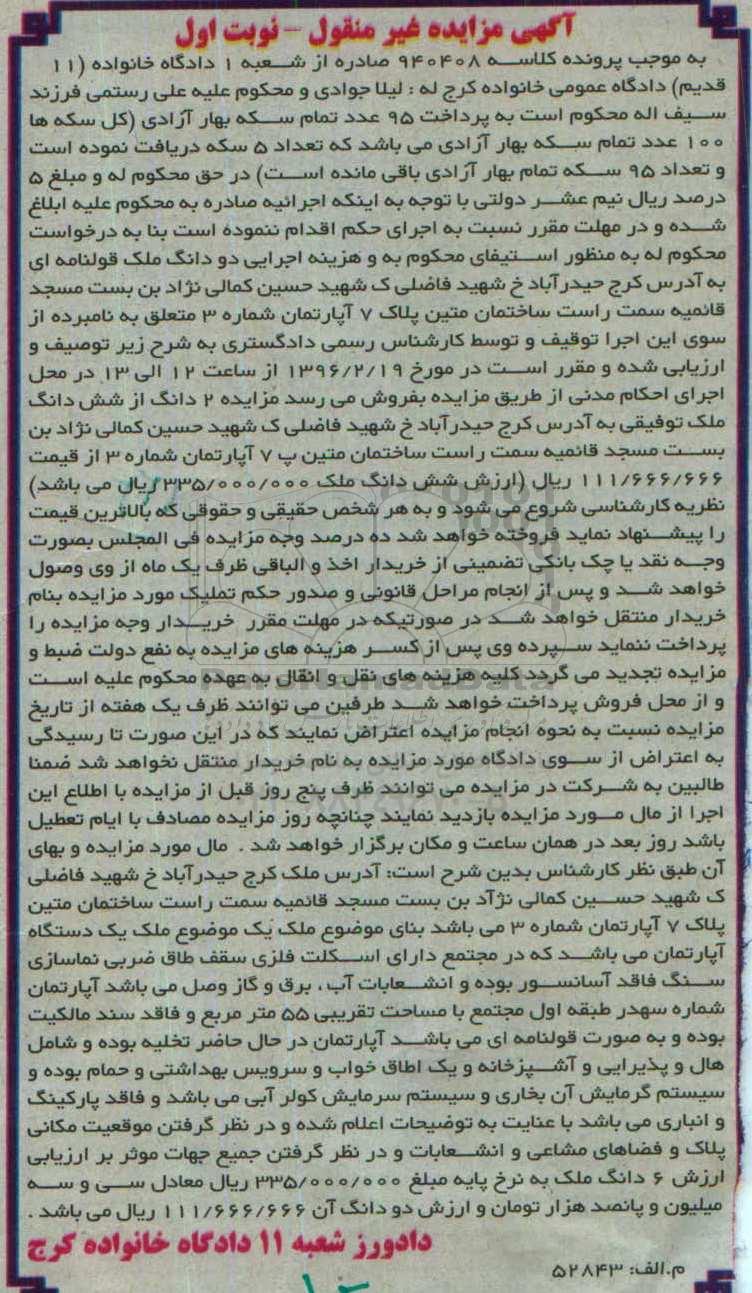 آگهی مزایده غیر منقول - نوبت اول
به موجب پرونده کلاسه ۹۴۰۴۰۸ صادره از شعبه ۱ دادگاه خانواده (۱۱
قدیم) دادگاه عمومی خانواده کرج له : لیلا جوادی و محکوم علیه علی رستمی فرزند
سیف اله محکوم است به پرداخت ۹۵ عدد تمام سکه بهار آزادی (کل سکه ها
۱۰۰ عدد تمام سکه بهار آزادی می باشد که تعداد ۵ سکه دریافت نموده است
و تعداد ۹۵ سکه تمام بهار آزادی باقی مانده است) در حق محکوم له و مبلغ ۵
درصد ریال نیم عشر دولتی با توجه به اینکه اجرائیه صادره به محکوم علیه ابلاغ
شده و در مهلت مقرر نسبت به اجرای حکم اقدام ننموده است بنا به درخواست
محکوم له به منظور استیفای محکوم به و هزینه اجرایی دو دانگ ملک قولنامه ای
به آدرس کرج حیدرآباد خ شهید فاضلی ک شهید حسین کمالی نژاد بن بست مسجد
قائمیه سمت راست ساختمان متین پلاک ۷ آپارتمان شماره ۳ متعلق به نامبرده از
سوی این اجرا توقیف و توسط کارشناس رسمی دادگستری به شرح زیر توصیف و
ارزیابی شده و مقرر است در مورخ ۱۳۹۶/۲/۱۹ از ساعت ۱۲ الی ۱۳ در محل
اجرای احکام مدنی از طریق مزایده بفروش می رسد مزایده ۲ دانگ از شش دانگ
ملک توفیقی به آدرس کرج حیدرآباد خ شهید فاضلی ک شهید حسین کمالی نژاد بن
بست مسجد قائمیه سمت راست ساختمان متین پ ۷ آپارتمان شماره ۳ از قیمت
۱۱۱/۶۶۶/۶۶۶ ریال (ارزش شش دانگ ملک ۳۳۵/۰۰۰/۰۰۰ ریال می باشد)
نظریه کارشناسی شروع می شود و به هر شخص حقیقی و حقوقی که بالاترین قیمت
را پیشنهاد نماید فروخته خواهد شد ده درصد وجه مزایده فی المجلس بصورت
وجه نقد یا چک بانکی تضمینی از خریدار اخذ و الباقی ظرف یک ماه از وی وصول
خواهد شد و پس از انجام مراحل قانونی و صدور حکم تملیک مورد مزایده بنام
خریدار منتقل خواهد شد در صورتیکه در مهلت مقرر خریدار وجه مزایده را
پرداخت ننماید سپرده وی پس از کسر هزینه های مزایده به نفع دولت ضبط و
مزایده تجدید می گردد کلیه هزینه های نقل و انقال به عهده محکوم علیه است
و از محل فروش پرداخت خواهد شد طرفین می توانند ظرف یک هفته از تاریخ
مزایده نسبت به نحوه انجام مزایده اعتراض نمایند که در این صورت تا رسیدگی
به اعتراض از سوی دادگاه مورد مزایده به نام خریدار منتقل نخواهد شد ضمنا
طالبین به شرکت در مزایده می توانند ظرف پنج روز قبل از مزایده با اطلاع این
اجرا از مال مورد مزایده بازدید نمایند چنانچه روز مزایده مصادف با ایام تعطیل
باشد روز بعد در همان ساعت و مکان برگزار خواهد شد . مال مورد مزایده و بهای
آن طبق نظر کارشناس بدین شرح است: آدرس ملک کرج حیدرآباد خ شهید فاضلی
ک شهید حسین کمالی نژآد بن بست مسجد قائمیه سمت راست ساختمان متین
پلاک ۷ آپارتمان شماره ۳ می باشد بنای موضوع ملک یک موضوع ملک یک دستگاه
آپارتمان می باشد که در مجتمع دارای اسکلت فلزی سقف طاق ضربی نماسازی
سنگ فاقد آسانسور بوده و انشعابات آب ، برق و گاز وصل می باشد آپارتمان
شماره سهدر طبقه اول مجتمع با مساحت تقریبی ۵۵ متر مربع و فاقد سند مالکیت
بوده و به صورت قولنامه ای می باشد آپارتمان در حال حاضر تخلیه بوده و شامل
هال و پذیرایی و آشپزخانه و یک اطاق خواب و سرویس بهداشتی و حمام بوده و
سیستم گرمایش آن بخاری و سیستم سرمایش کولر آبی می باشد و فاقد پارکینگ
و انباری می باشد با عنایت به توضیحات اعلام شده و در نظر گرفتن موقعیت مکانی
پلاک و فضاهای مشاعی و انشعابات و در نظر گرفتن جمیع جهات موثر بر ارزیابی
ارزش ۶ دانگ ملک به نرخ پایه مبلغ ۳۳۵/۰۰۰/۰۰۰ ریال معادل سی و سه
میلیون و پانصد هزار تومان و ارزش دو دانگ آن ۱۱۱/۶۶۶/۶۶۶ ریال می باشد .
دادورز شعبه ۱۱ دادگاه خانواده کرج
م.الف: ۵۲۸۴۳